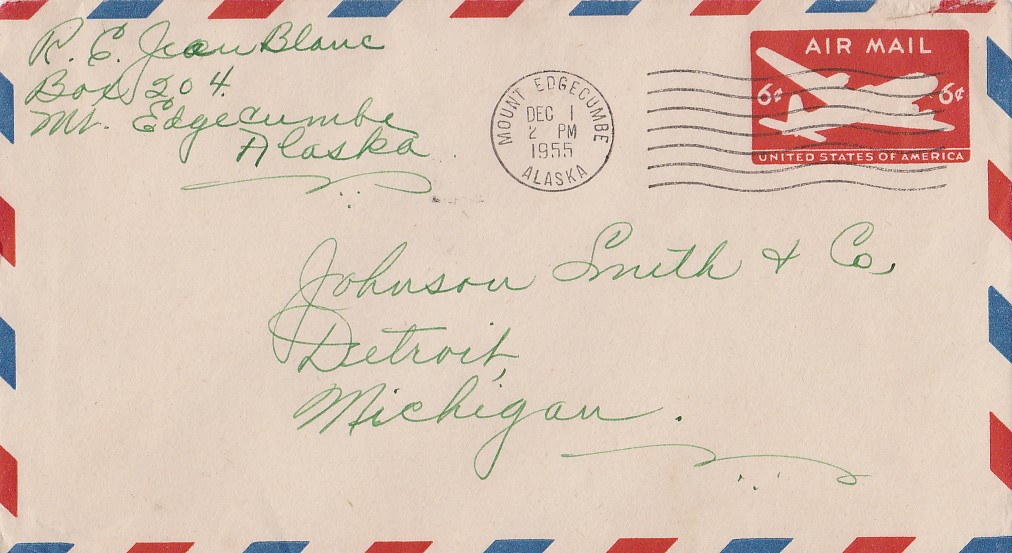 R. E. Jean Blanc
Box 204
Mt. Edgecumbe
Alaska
MOUNT EDGECUMBE
DEC 1
2 PM
1955
ALASKA
AIR MAIL
6¢ 6¢
UNITED STATES OF AMERICA
Johnson Smith & Co,
Detroit,
Michigan.